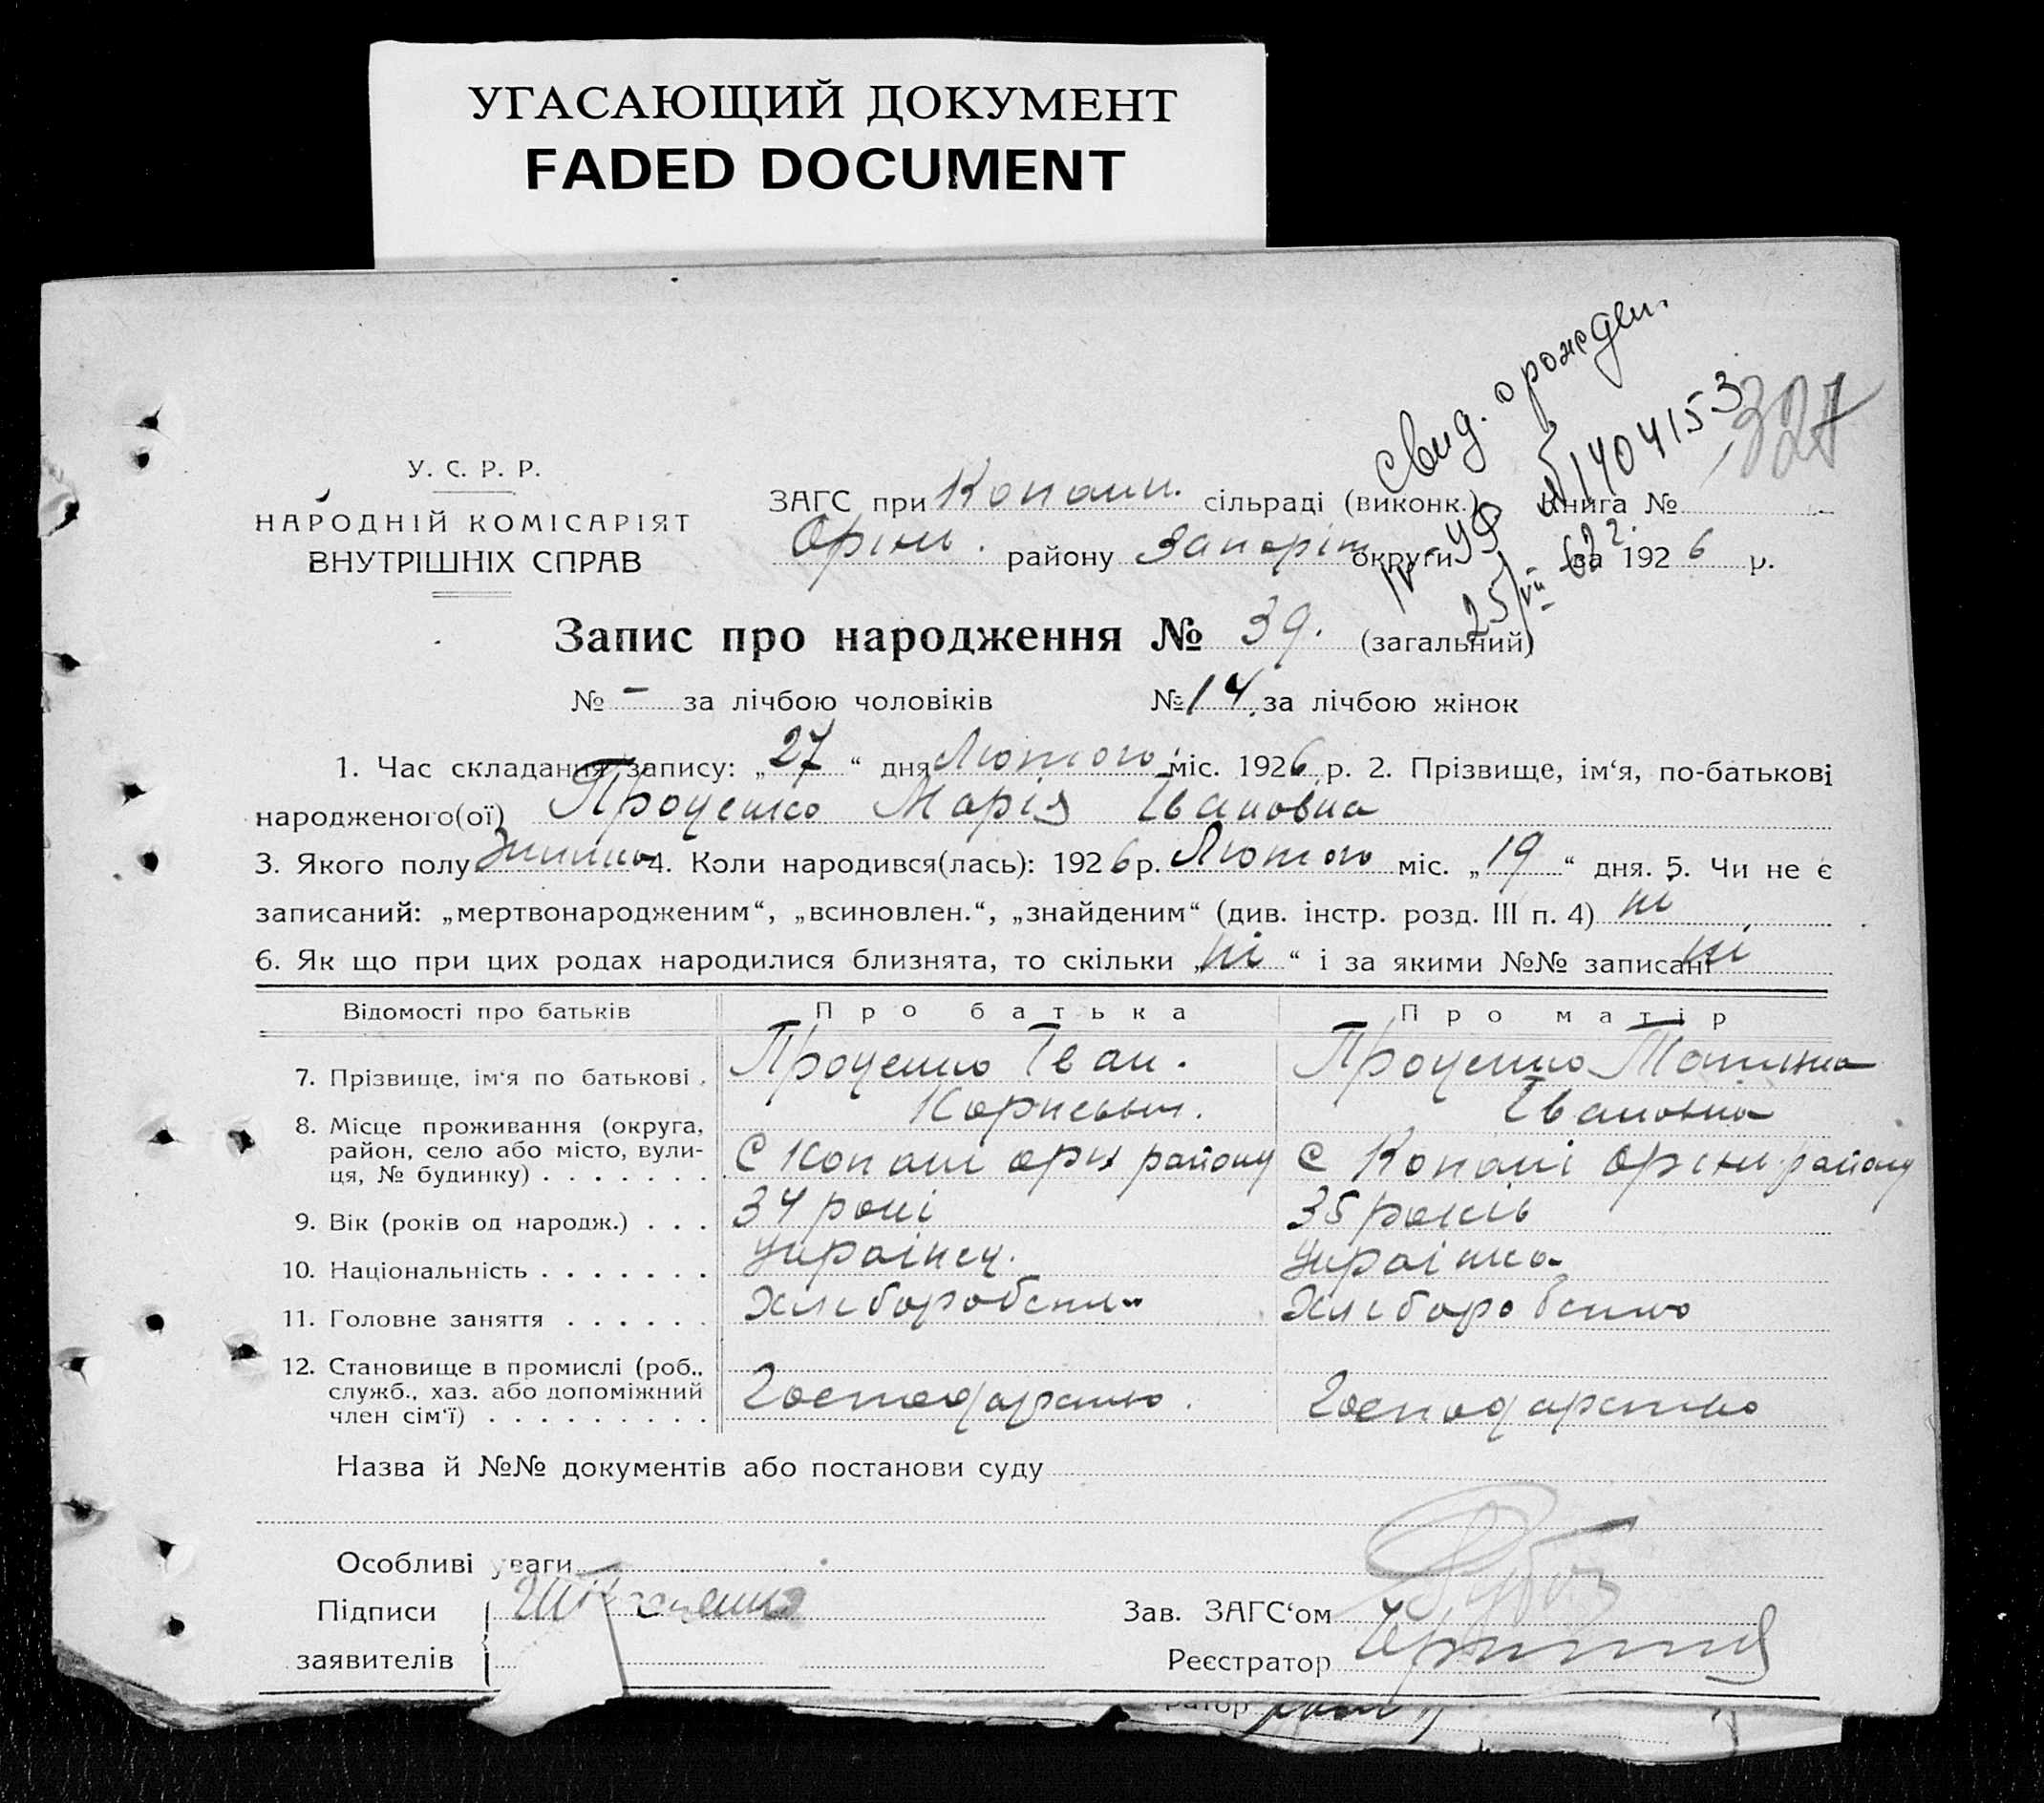 УГАСАЮЩИЙ ДОКУМЕНТ
FADED DOCUMENT
свид. о рожден.
1404153
25/VII 62 г.
327
У. С. Р. Р.
НАРОДНІЙ КОМІСАРІЯТ
ВНУТРІШНІХ СПРАВ
ЗАГС при Копани. сільраді (виконк.) Книга №
Оріхи. району Запоріж округи за 1926 р.
Запис про народження № 39. (загальний)
№ – за лічбою чоловіків № 14. за лічбою жінок
1. Час складання запису: „27“ дня Лютого міс. 1926 р. 2. Прізвище, ім‘я, по-батькові
народженого(ої) Проценко Марія Івановна
3. Якого полу 4. Коли народився(лась): 1926 р. Лютого міс. „19“ дня. 5. Чи не є
записаний: „мертвонародженим“, „всиновлен.“, „знайденим“ (див. інстр. розд. III п. 4) ні
6. Як що при цих родах народилися близнята, то скільки „ні“ і за якими №№ записані ні
Відомості про батьків Про батька Про матір
7. Прізвище, ім‘я по батькові. Проценко Іван. Проценко Татяна
Корнеєвич. Івановна
8. Місце проживання (округа,
район, село або місто, вули-
ця, № будинку) . . . . . . . С Копані орх району С Копані Оріхи району
9. Вік (років од народж.) . . . 34 рокі 35 років
10. Національність . . . . . . . Українец. Українка
11. Головне заняття . . . . . . Хліборобство Хліборобство
12. Становище в промислі (роб.,
служб., хаз. або допоміжний
член сім‘ї) . . . . . . . . . Господарство. Господарство
Назва й №№ документів або постанови суду
Особливі уваги
Підписи
заявителів
Зав. ЗАГС‘ом
Реєстратор
ратор